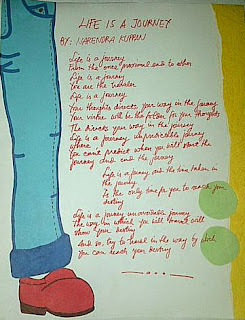 LIFE IS A JOURNEY
BY: NARENDRA KUPPAN
Life is a journey
From the ones provisional end to other
Life is a journey
You are the traveler
Life is a journey
Your thoughts directs your way in the journey
Your virtue will be the for your thoughts
The directs your way in the journey
Life is a journey, unpredictable journey
where
You can't predict when you will start the
journey and end the journey
Life is a journey, and the time taken in
the journey
Is the only time for you to reach your
destiny
Life is a journey journey
The way in which you will travel will
show your destiny
And so, try to travel in the way by which
You can reach your destiny